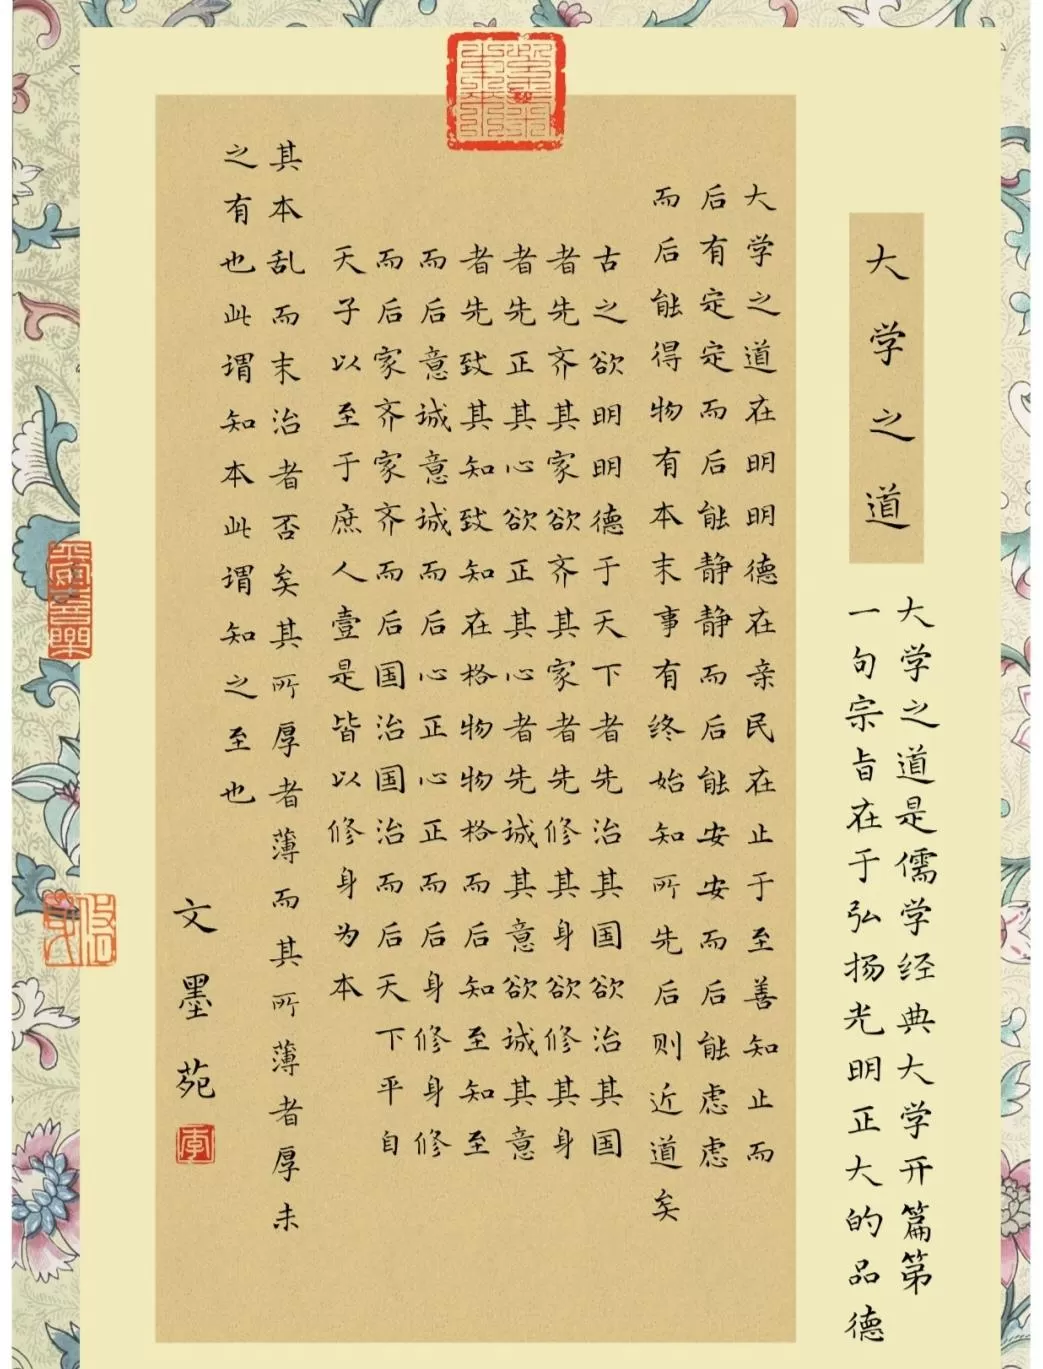 大学之道
大学之道是儒学经典大学开篇第
一句宗旨在于弘扬光明正大的品德
大学之道在明明德在亲民在止于至善知止而
后有定定而后能静静而后能安安而后能虑虑
而后能得物有本末事有终始知所先后则近道矣
古之欲明明德于天下者先治其国欲治其国
者先齐其家欲齐其家者先修其身欲修其身
者先正其心欲正其心者先诚其意欲诚其意
者先致其知致知在格物物格而后知至知至
而后意诚意诚而后心正心正而后身修身修
而后家齐家齐而后国治国治而后天下平自
天子以至于庶人壹是皆以修身为本
其本乱而末治者否矣其所厚者薄而其所薄者厚未
之有也此谓知本此谓知之至也
文墨苑
李